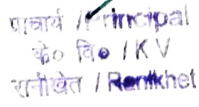 प्राचार्य / Principal
के० वि० / K V
रानीखेत / Ranikhet